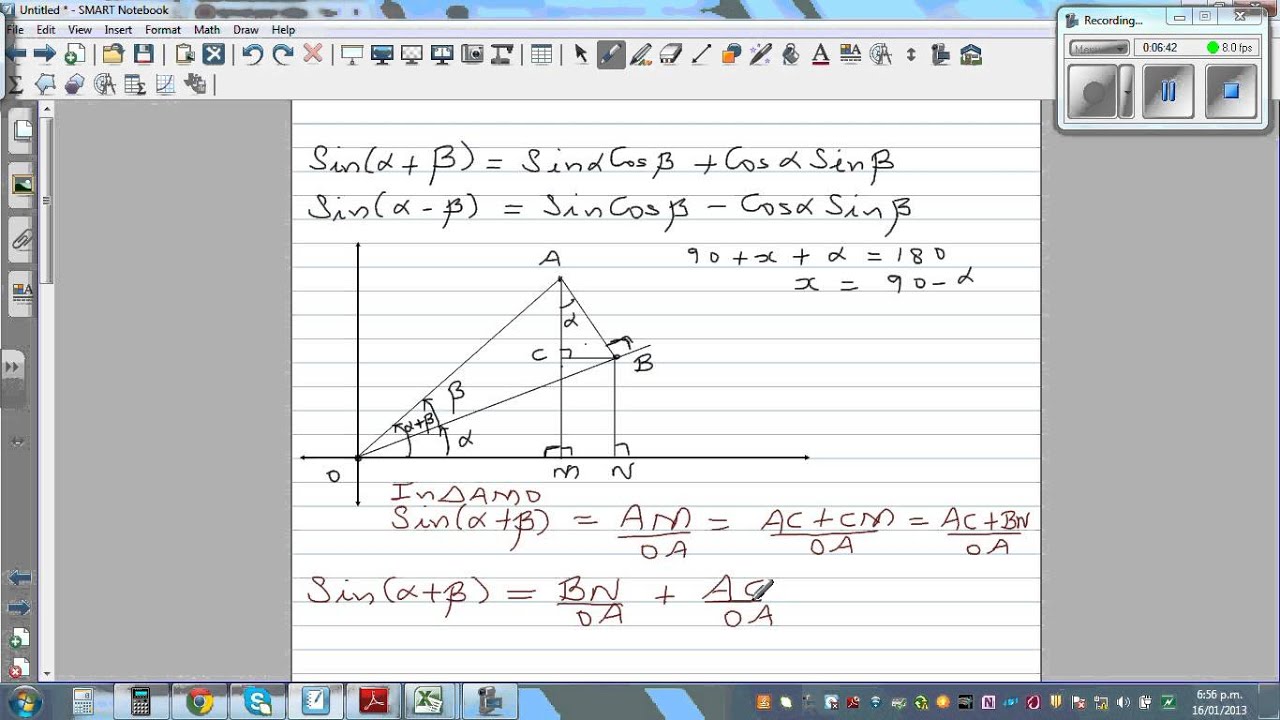 Untitled * - SMART Notebook
File Edit View Insert Format Math Draw Help
Recording...
Menu
0:06:42
8.0 fps
Sin(α + β) = Sinα Cosβ + Cosα Sinβ
Sin(α - β) = SinCosβ - Cosα Sinβ
90 + x + α = 180
x = 90 - α
A
α
C
B
β
α+β
α
O
M
N
In △AMO
Sin(α+β) = AM/OA = AC+CM/OA = AC+BN/OA
Sin(α+β) = BN/OA + AC/OA
6:56 p.m.
16/01/2013